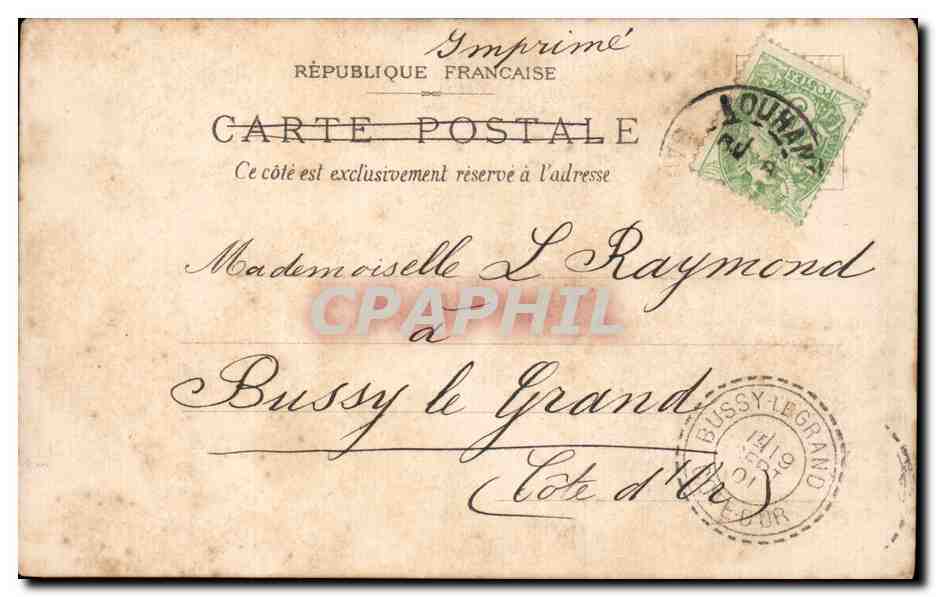 Imprimé
RÉPUBLIQUE FRANCAISE
CARTE POSTALE
Ce côté est exclusivement réservé à l'adresse
POSTES
LOUHANS
Mademoiselle L Raymond
CPAPHIL
à
Bussy le Grand
(Côte d'Or)
BUSSY-LE-GRAND
19
SEPT
01
CÔTE D'OR